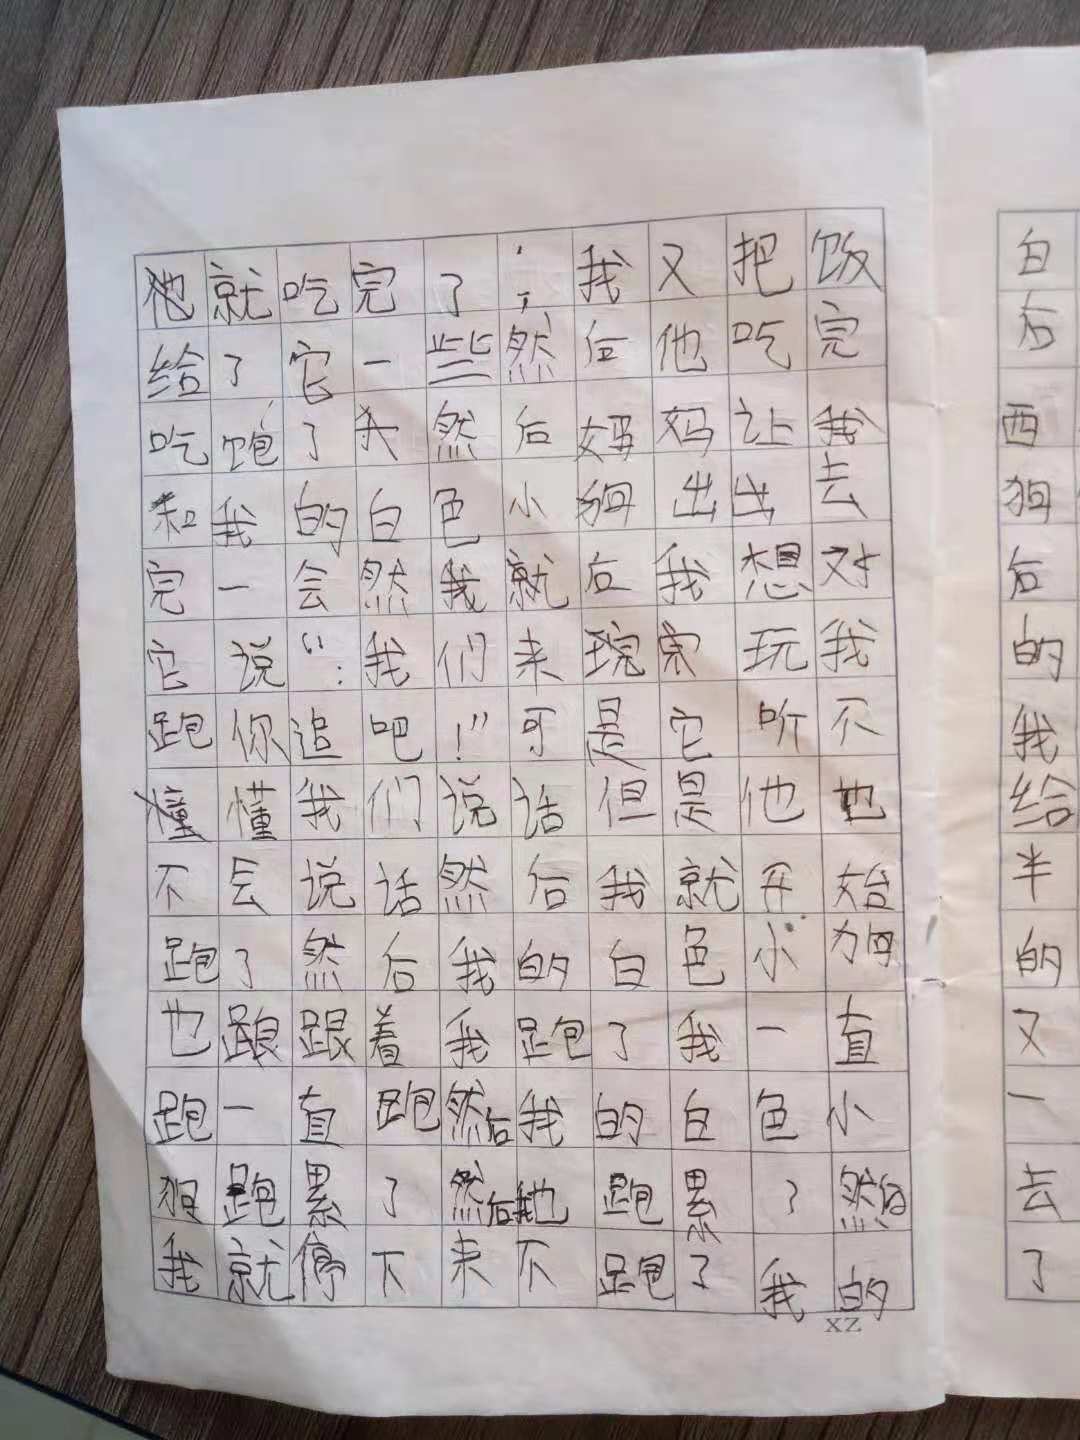 他就吃完了；我又把饭
给了它一些然后他吃完
吃饱了然后妈妈让我
和我的白色小狗出出去
完一会然我就后我想对
它说“：我们来玩完玩我
跑你追吧！”可是它听不
懂懂我们说话但是他也
不会说话然后我就开始
跑了然后我的白色小狗
也跟跟着我跑了我一直
跑一直跑然后我的白色小
狗跑累了然后我也跑累了然后
我就停下来不跑了我的
XZ
白
后
西
狗
后
的
我
给
半
的
又
一
去
了